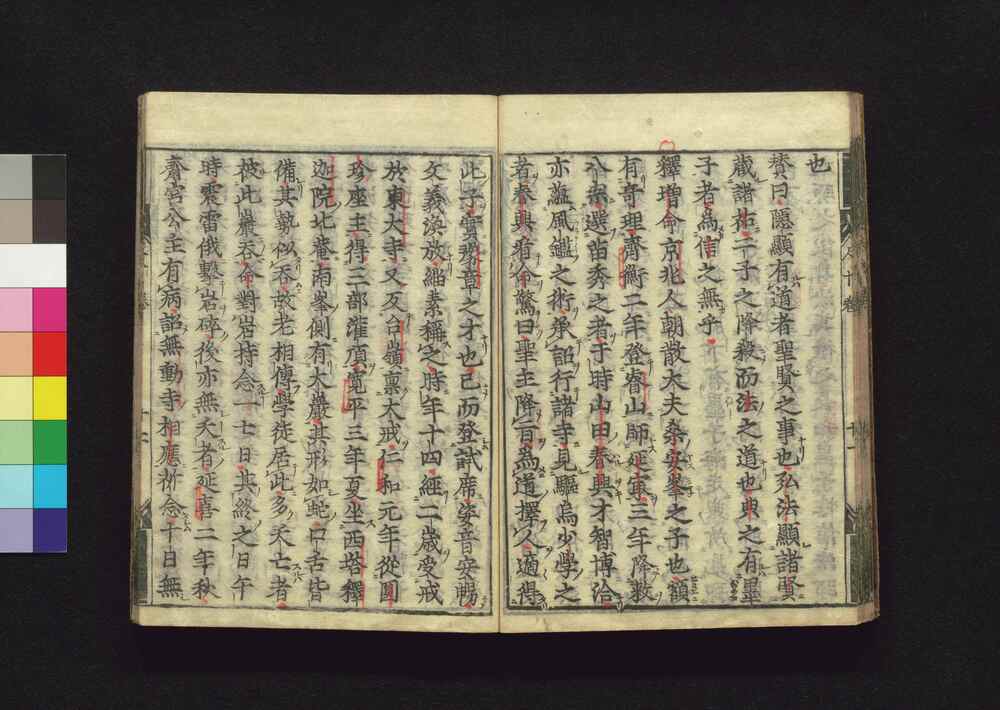 也
賛曰隱顯有道者聖賢之事也弘法顯諸賢
藏諸拓二子之降殺而法之之道也典之有畢
子者為信之無乎
釋增命京兆人朝散大夫桑安峯之子也頷
有奇理齊衡二年登睿山師延寂三年降敕
令選苗秀之者于時山田春興才智博洽
亦蘊風鑑之術承詔行諸寺見驅烏少學之
者春興看命驚曰聖主降旨為道擇人適得
此子實發章之才也已而登試席姿音安暢
文義渙放緇素稱之時年十四經二歲受戒
於東大寺又反台嶺稟大戒仁和元年從圓
珍座主得三部灌頂寛平三年夏坐西塔釋
迦院北菴南峯側有大巖其形如蛇口舌皆
備其勢似吞故老相傳學徒居此多夭亡者
彼此巖吞命對岩持念一七日其終之日午
時震雷俄擊岩碎後亦無夭者延喜二年秋
齋宮公主有病詔無動寺相應祈念十日無